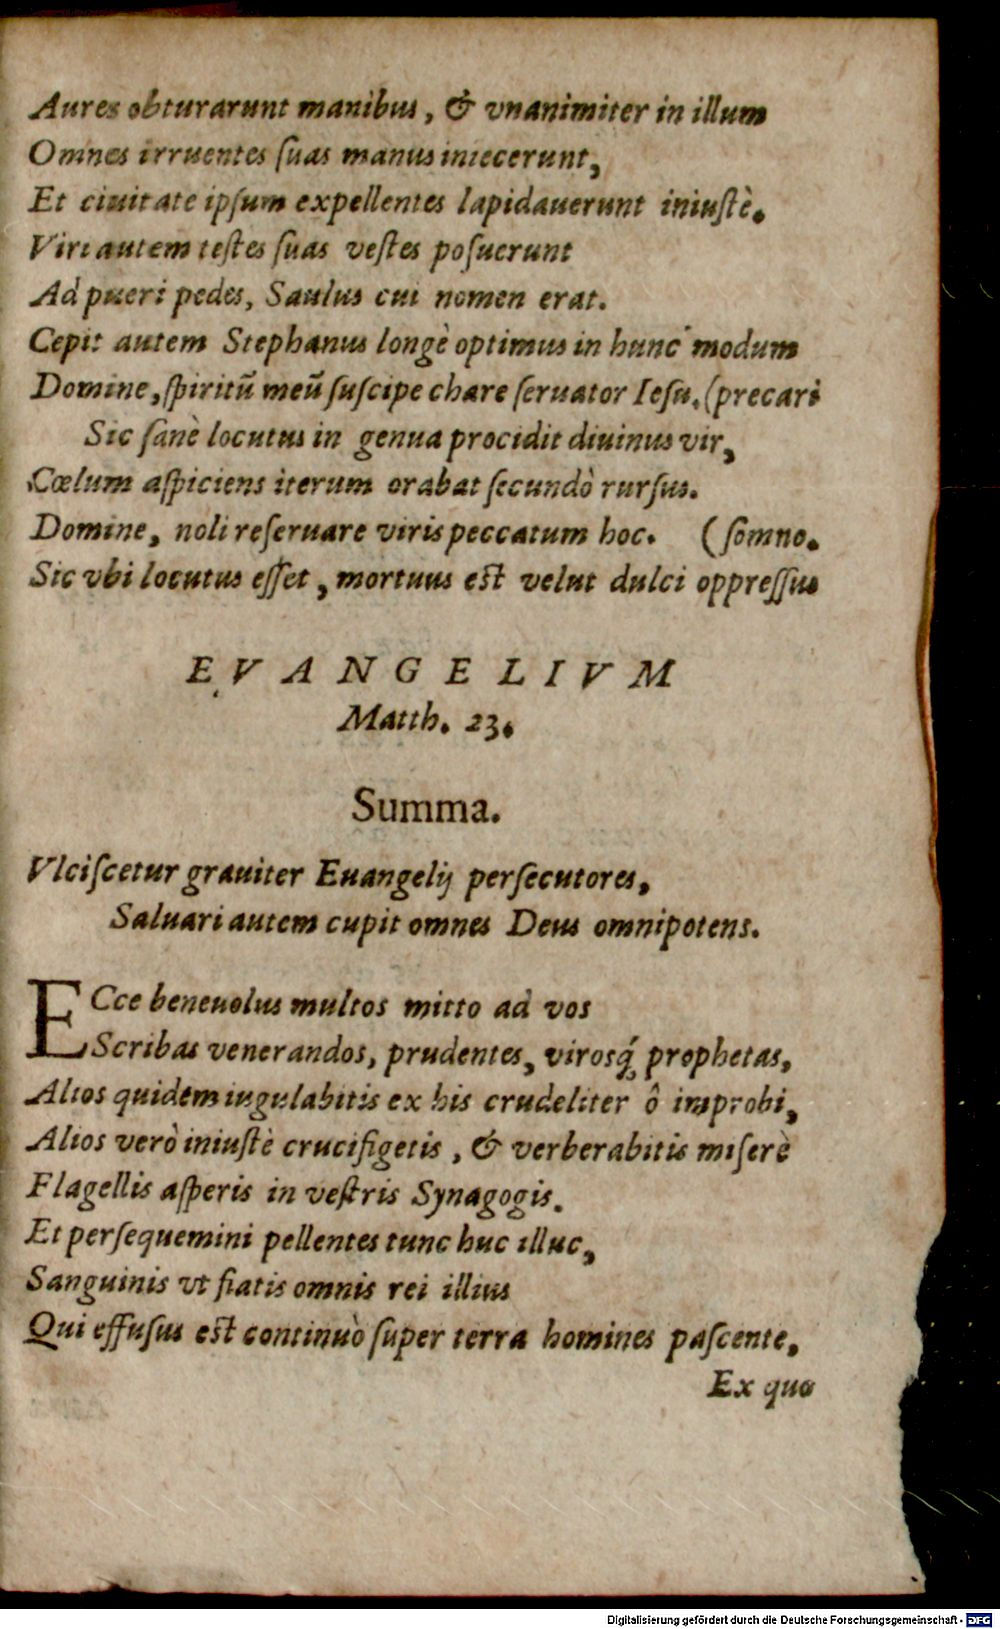 Aures obturarunt manibus, & vnanimiter in illum
Omnes irruentes ſuas manus iniecerunt,
Et ciuitate ipſum expellentes lapidauerunt iniuſtè.
Viri autem teſtes ſuas veſtes poſuerunt
Ad pueri pedes, Saulus cui nomen erat.
Cepit autem Stephanus longè optimus in hunc modum
Domine, ſpiritū meū ſuſcipe chare ſeruator Ieſu. (precari
Sic ſanè locutus in genua procidit diuinus vir,
Cœlum aſpiciens iterum orabat ſecundò rurſus.
Domine, noli reſeruare viris peccatum hoc. (ſomno.
Sic vbi locutus eſſet, mortuus eſt velut dulci oppreſſus
EVANGELIVM
Matth. 23.
Summa.
Vlciſcetur grauiter Euangelij perſecutores,
Saluari autem cupit omnes Deus omnipotens.
ECce beneuolus multos mitto ad vos
Scribas venerandos, prudentes, virosq́; prophetas,
Alios quidem iugulabitis ex his crudeliter ô improbi,
Alios verò iniuſtè crucifigetis, & verberabitis miſerè
Flagellis aſperis in veſtris Synagogis.
Et perſequemini pellentes tunc huc illuc,
Sanguinis vt fiatis omnis rei illius
Qui effuſus eſt continuò ſuper terra homines paſcente,
Ex quo
Digitalisierung gefördert durch die Deutsche Forschungsgemeinschaft - DFG